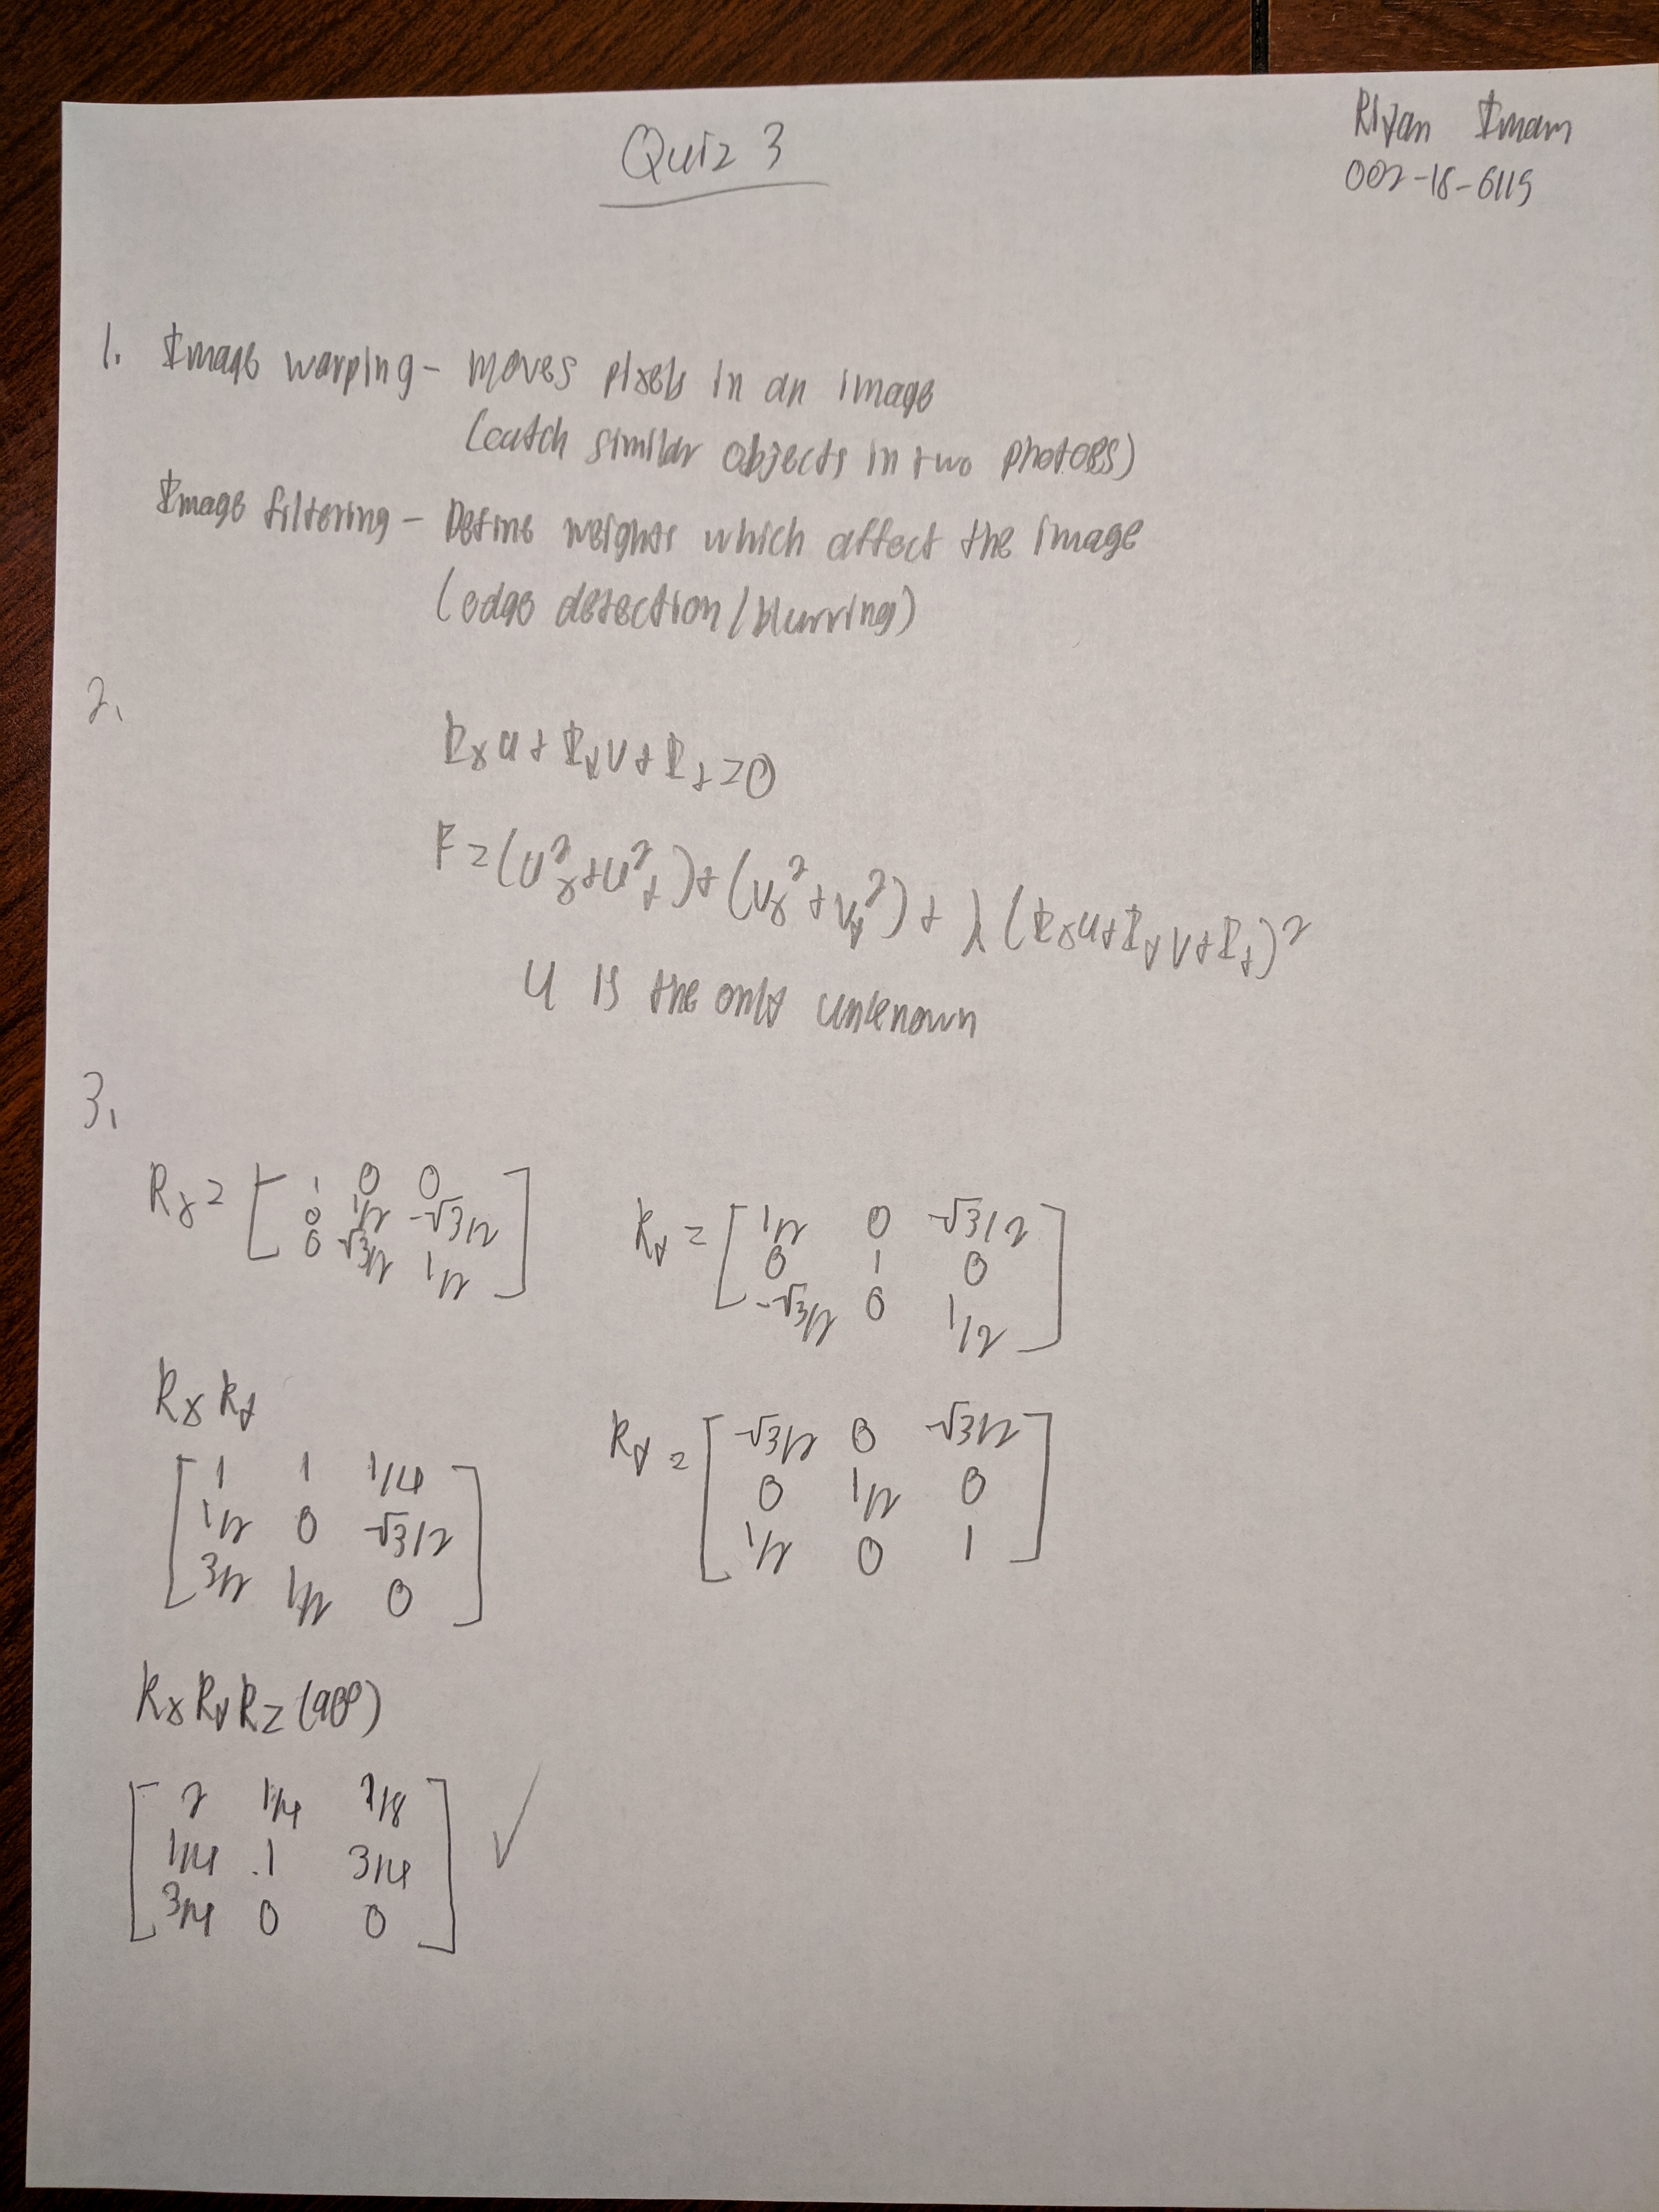 Quiz 3
Riyan Imam
002-18-6115
1. Image warping - moves pixels in an image
(catch similar objects in two photoes)
Image filtering - Define weights which affect the image
(edge detection/blurring)
2.
Ixu + Iyv + It = 0
F = (ux² + ut²) + (vx² + vy²) + λ (Ixu + Iyv + It)²
u is the only unknown
3.
Rx = [ 1 0 0
0 1/2 -√3/2
0 √3/2 1/2 ]
Ry = [ 1/2 0 √3/2
0 1 0
-√3/2 0 1/2 ]
Rx Ry
[ 1 1 1/4
1/2 0 √3/2
3/2 1/2 0 ]
Ry = [ √3/2 0 √3/2
0 1/2 0
1/2 0 1 ]
Rx Ry Rz (90°)
[ 2 1/4 1/8
1/4 .1 3/4
3/4 0 0 ] ✓